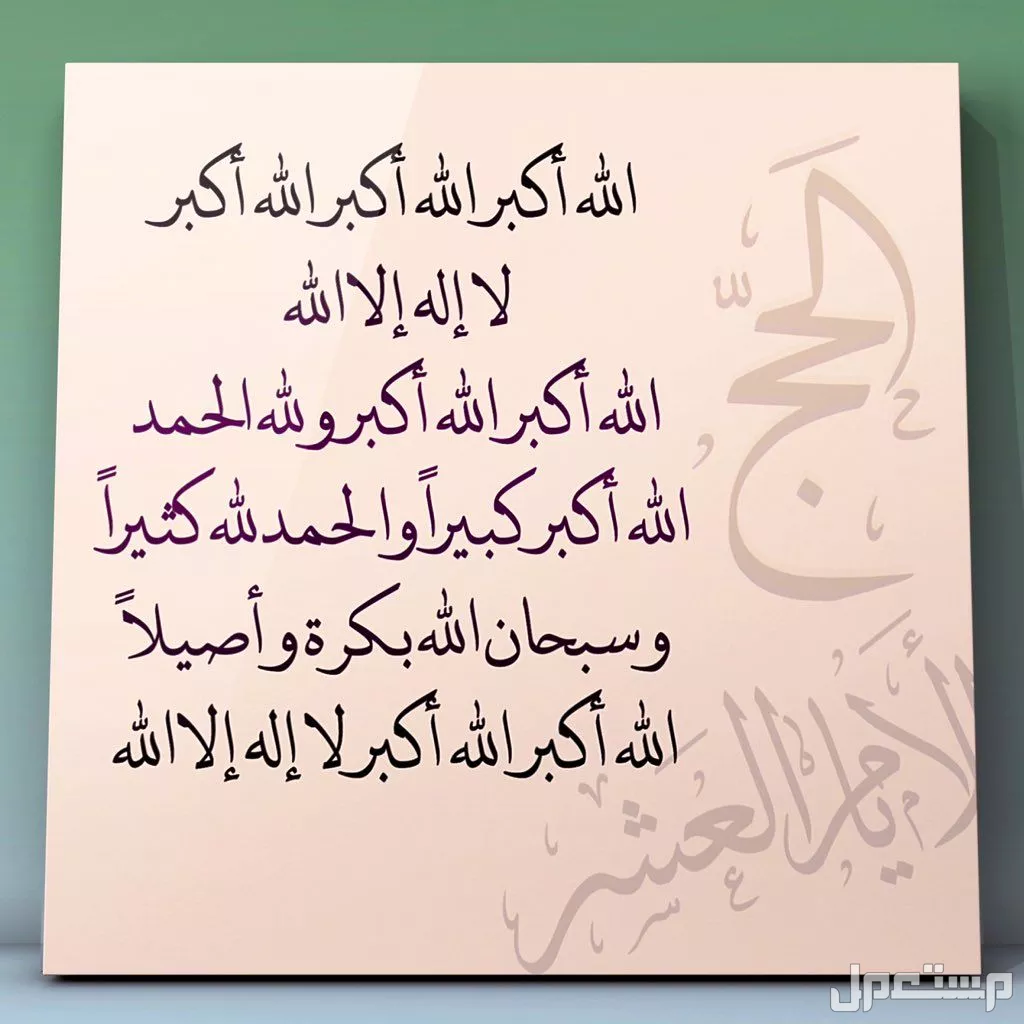 الله أكبر الله أكبر الله أكبر
لا إله إلا الله
الله أكبر الله أكبر ولله الحمد
الله أكبر كبيراً والحمد لله كثيراً
وسبحان الله بكرة وأصيلاً
الله أكبر الله أكبر لا إله إلا الله
الحَجّ
لأيَام العَشر
مستعمل